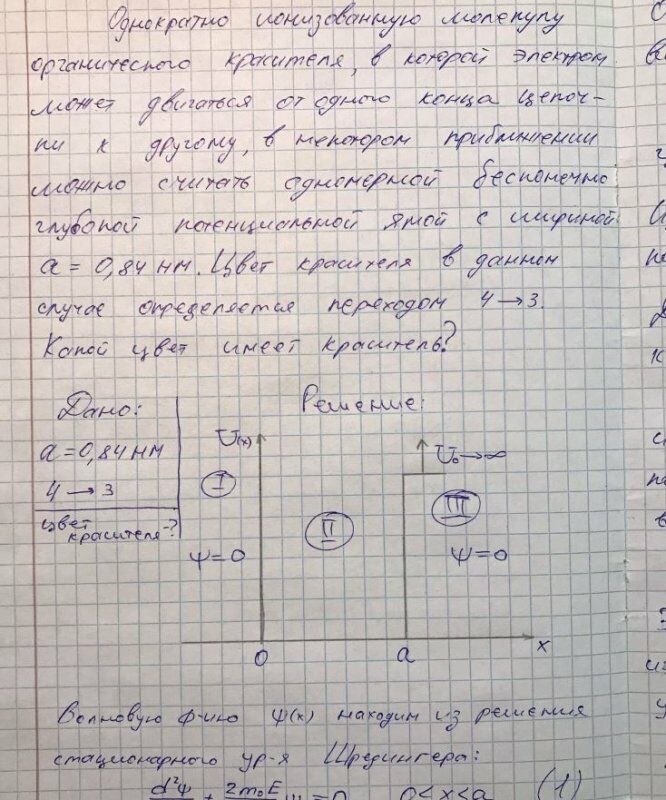 Однократно ионизованную молекулу
органического красителя, в которой электрон
может двигаться от одного конца цепоч-
ки к другому, в некотором приближении
можно считать одномерной бесконечно
глубокой потенциальной ямой с шириной
a = 0,84 нм. Цвет красителя в данном
случае определяется переходом 4 → 3.
Какой цвет имеет краситель?
Дано:
Решение:
a = 0,84 нм
4 → 3
цвет
красителя-?
U(x)
U₀ → ∞
I
II
III
ψ = 0
ψ = 0
0
a
x
Волновую ф-ию ψ(x) находим из решения
стационарного ур-я Шредингера:
d²ψ + 2m₀E ψ = 0 0 < x < a (1)